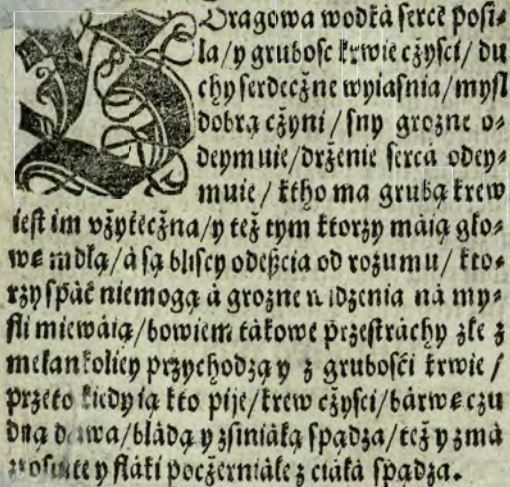 BOragowa wodká serce posi⸗
la/y grubosc krwie cżyści/du
chy serdecżne wyiaśnia/myśl
dobrą cżyni/sny groźne o⸗
deymuie/drżenie sercá odey⸗
muie/ktho ma grubą krew
iest im vżytecżna/y też tym ktorzy máią gło⸗
wę mdłą/á są bliscy odeßcia od rozumu/kto⸗
rzy spáć niemogą á groźne widzenia ná my⸗
śli miewáią/bowiem tákowe przestráchy złe z
melankoliey przychodzą y z grubośći krwie/
przeto kiedy ią kto pije/krew cżyści/bárwę czu
dną dawa/bládą y zsiniáłą spądza/też y zmá
zosute y fláki pocżerniáłe z ciáłá spądza.